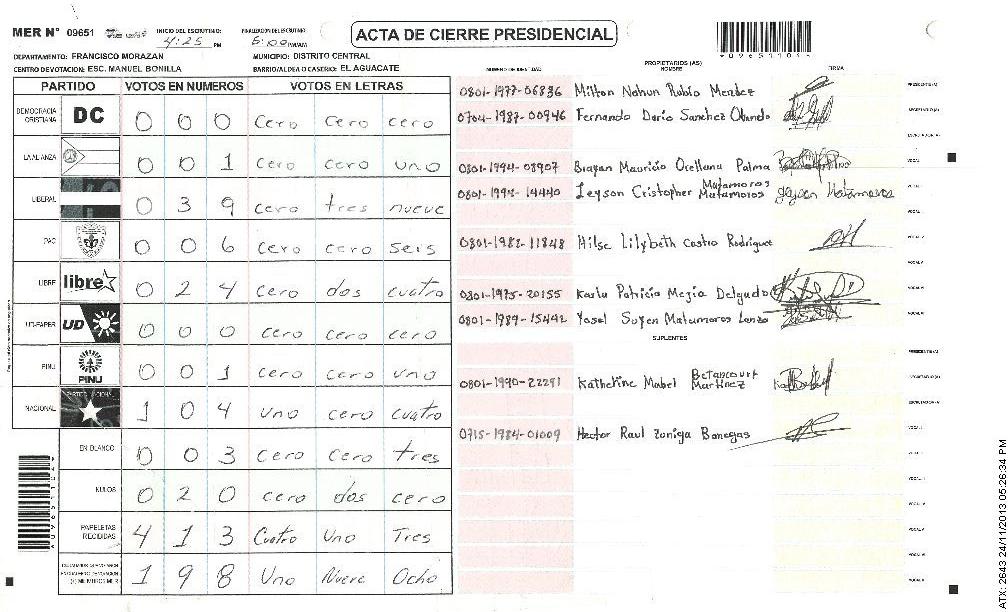 MER N° 09651
INICIO DEL ESCRUTINIO: 4:25 PM
FINALIZACION DEL ESCRUTINIO: 6:00 PM/AM
ACTA DE CIERRE PRESIDENCIAL
*09651104*
DEPARTAMENTO: FRANCISCO MORAZAN
MUNICIPIO: DISTRITO CENTRAL
CENTRO DE VOTACION: ESC. MANUEL BONILLA
BARRIO/ALDEA O CASERIO: EL AGUACATE
PARTIDO VOTOS EN NUMEROS VOTOS EN LETRAS
DEMOCRACIA CRISTIANA DC 0 0 0 cero cero cero
LA ALIANZA 0 0 1 cero cero uno
LIBERAL 0 3 9 cero tres nueve
PAC 0 0 6 cero cero seis
LIBRE libre 0 2 4 cero dos cuatro
UD-FAPER UD 0 0 0 cero cero cero
PINU PINU 0 0 1 cero cero uno
NACIONAL 1 0 4 uno cero cuatro
EN BLANCO 0 0 3 cero cero tres
NULOS 0 2 0 cero dos cero
PAPELETAS RECIBIDAS 4 1 3 Cuatro Uno Tres
1 9 8 Uno Nueve Ocho
NUMERO DE IDENTIDAD PROPIETARIOS (AS) NOMBRE FIRMA
0801-1977-06836 Milton Nahun Rubio Mendez PRESIDENTE(A)
0704-1987-00946 Fernando Dario Sanchez Obando SECRETARIO(A)
0801-1994-08907 Brayan Mauricio Orellana Palma VOCAL I
0801-1994-14440 Leyson Cristopher Matamoros Matamoros Leyson Matamoros
0801-1982-11848 Hilse Lilybeth Castro Rodriguez
0801-1975-20155 Karla Patricia Mejia Delgado
0801-1989-15442 Yosel Suyen Matamoros Lanzo
SUPLENTES
PRESIDENTE(A)
0801-1990-22291 Katherine Mabel Betancourt Martinez SECRETARIO(A)
0715-1984-01009 Hector Raul Zuniga Banegas
ATX: 2643 24/11/2013 05:26:34 PM